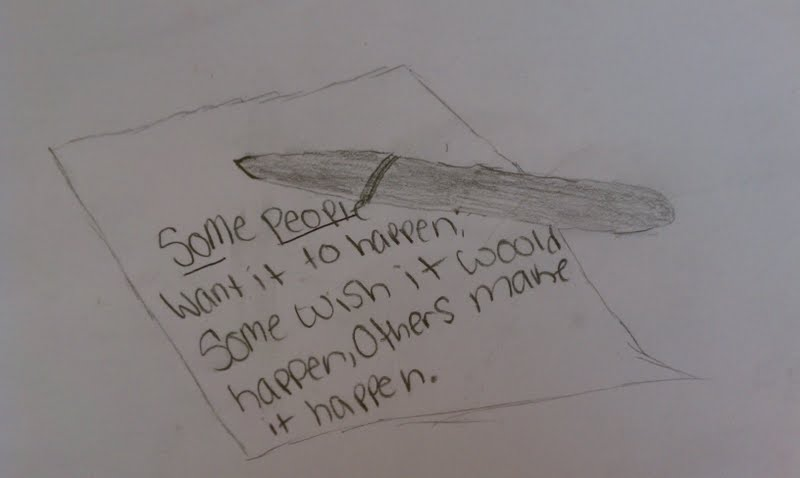 Some People
Want it to happen,
Some wish it woold
happen, Others make
it happen.